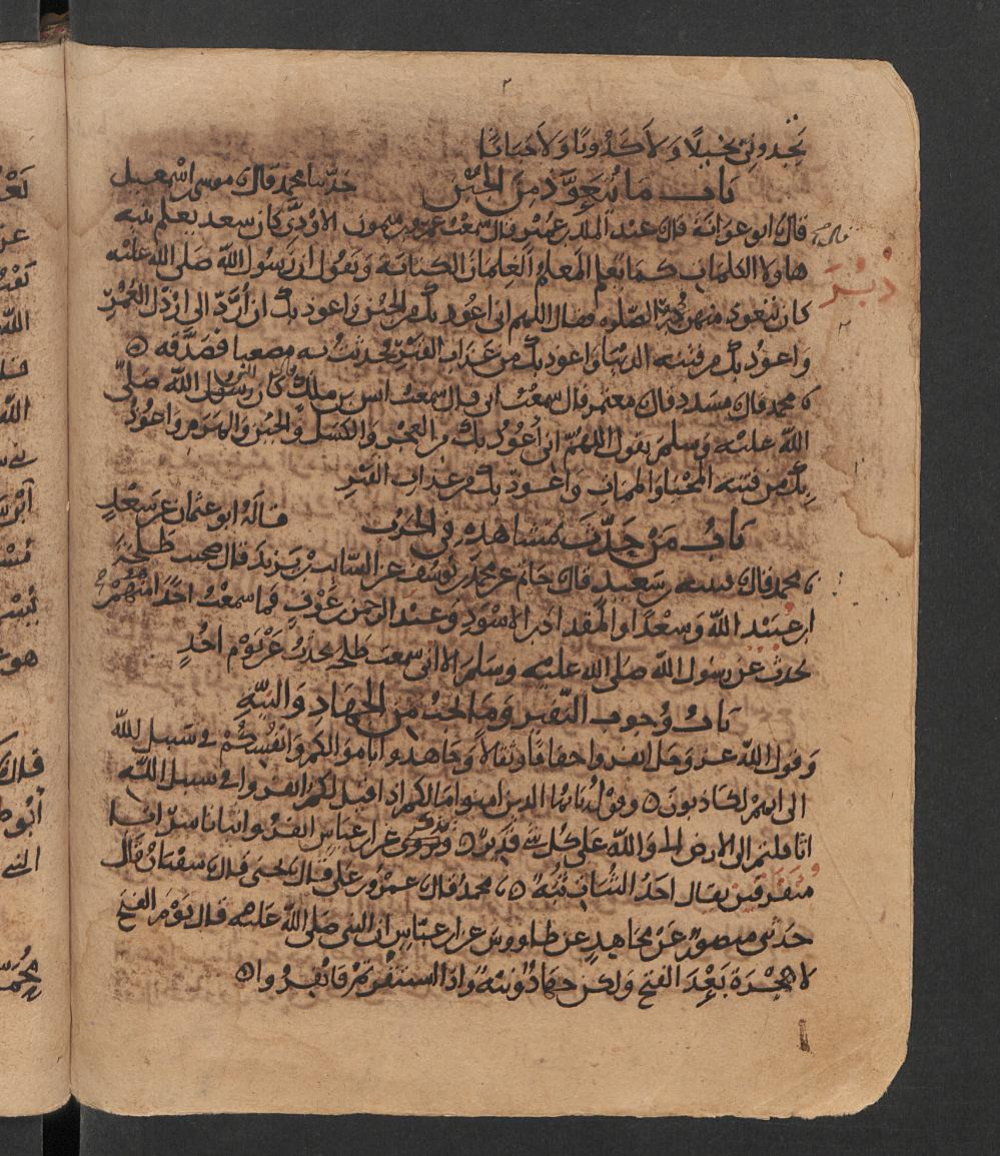 ٢
تجدوني بخيلا ولا كذوبا ولا جبانا
باب ما يتعوذ من الجبن حدثنا محمد قال موسى بن اسمعيل
قال ابو عوانة قال عبد الملك بن عمير قال سمعت عمرو بن ميمون الاودي كان سعد يعلم بنيه
هاولا الكلمات كما يعلم المعلم الغلمان الكتابة ويقول ان رسول الله صلى الله عليه
كان يتعوذ منهن دبر الصلوه اللهم اني اعوذ بك من الجبن واعوذ بك ان أرد الى ارذل العمر
دبر
واعوذ بك من فتنه الدنيا واعوذ بك من عذاب القبر فحدثت به مصعبا فصدقه
محمد قال مسدد قال معتمر قال سمعت ابي قال سمعت انس بن ملك كان رسول الله صلى
الله عليه وسلم يقول اللهم اني اعوذ بك من العجز والكسل والجبن والهرم واعوذ
بك من فتنه المحيا والممات واعوذ بك من عذاب القبر
باب من حدث بمشاهده في الحرب قاله ابو عثمان عن سعد
محمد قال قتيبه بن سعيد قال حاتم عن محمد بن يوسف عن السائب بن يزيد قال صحبت طلحة
بن عبيد الله وسعدا والمقداد بن الاسود وعبد الرحمن بن عوف فما سمعت احدا منهم
يحدث عن رسول الله صلى الله عليه وسلم الا اني سمعت طلحه يحدث عن يوم احد
باب وجوب النفير وما يجب من الجهاد والنيه
وقول الله عز وجل انفروا خفافا وثقالا وجاهدوا باموالكم وانفسكم في سبيل الله
الى انهم لكاذبون وقوله يايها الذين امنوا ما لكم اذا قيل لكم انفروا في سبيل الله
اثاقلتم الى الارض الى والله على كل شي قدير ويذكر عن ابن عباس انفروا ثباتا سرايا
متفرقين يقال احد الثبات ثبة محمد قال عمرو بن علي قال يحيى قال سفيان قال
حدثني منصور عن مجاهد عن طاووس عن ابن عباس ان النبي صلى الله عليه قال يوم الفتح
لا هجرة بعد الفتح ولكن جهاد ونية واذا استنفرتم فانفروا